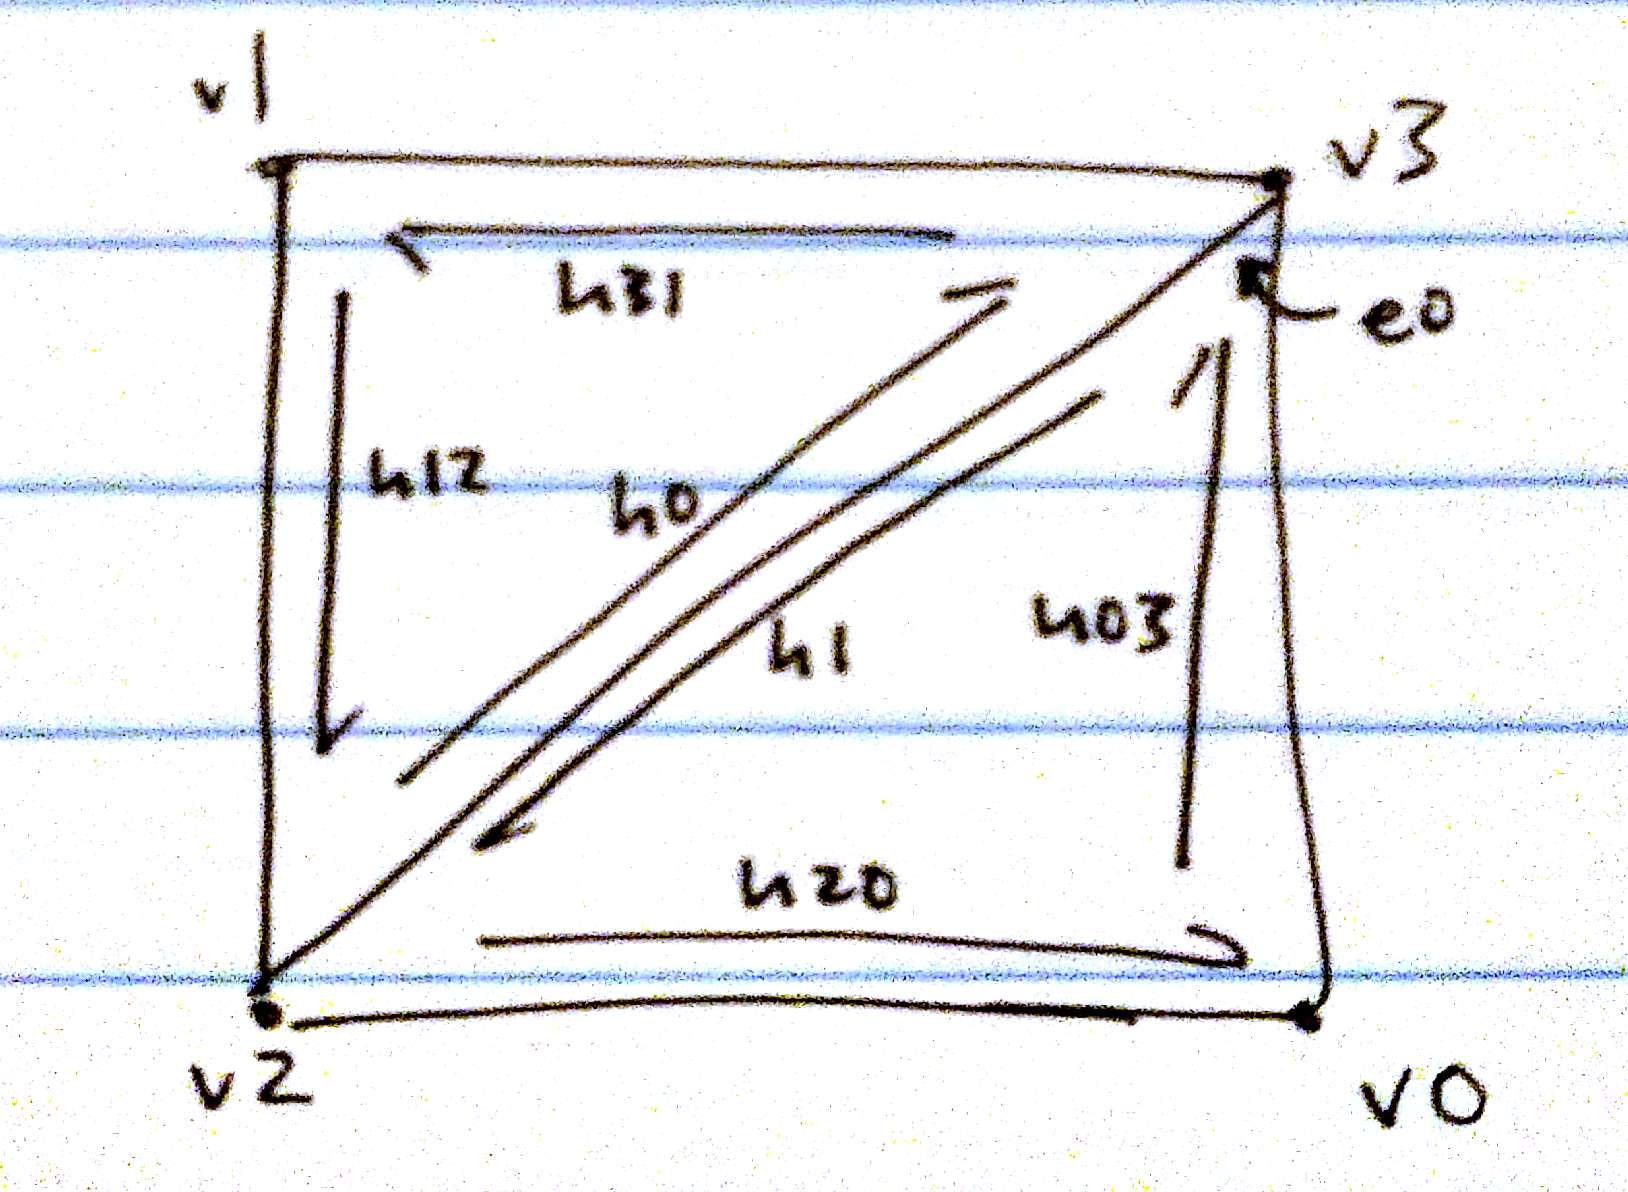 v1
v3
h31
e0
h12
h0
h03
h1
h20
v2
v0